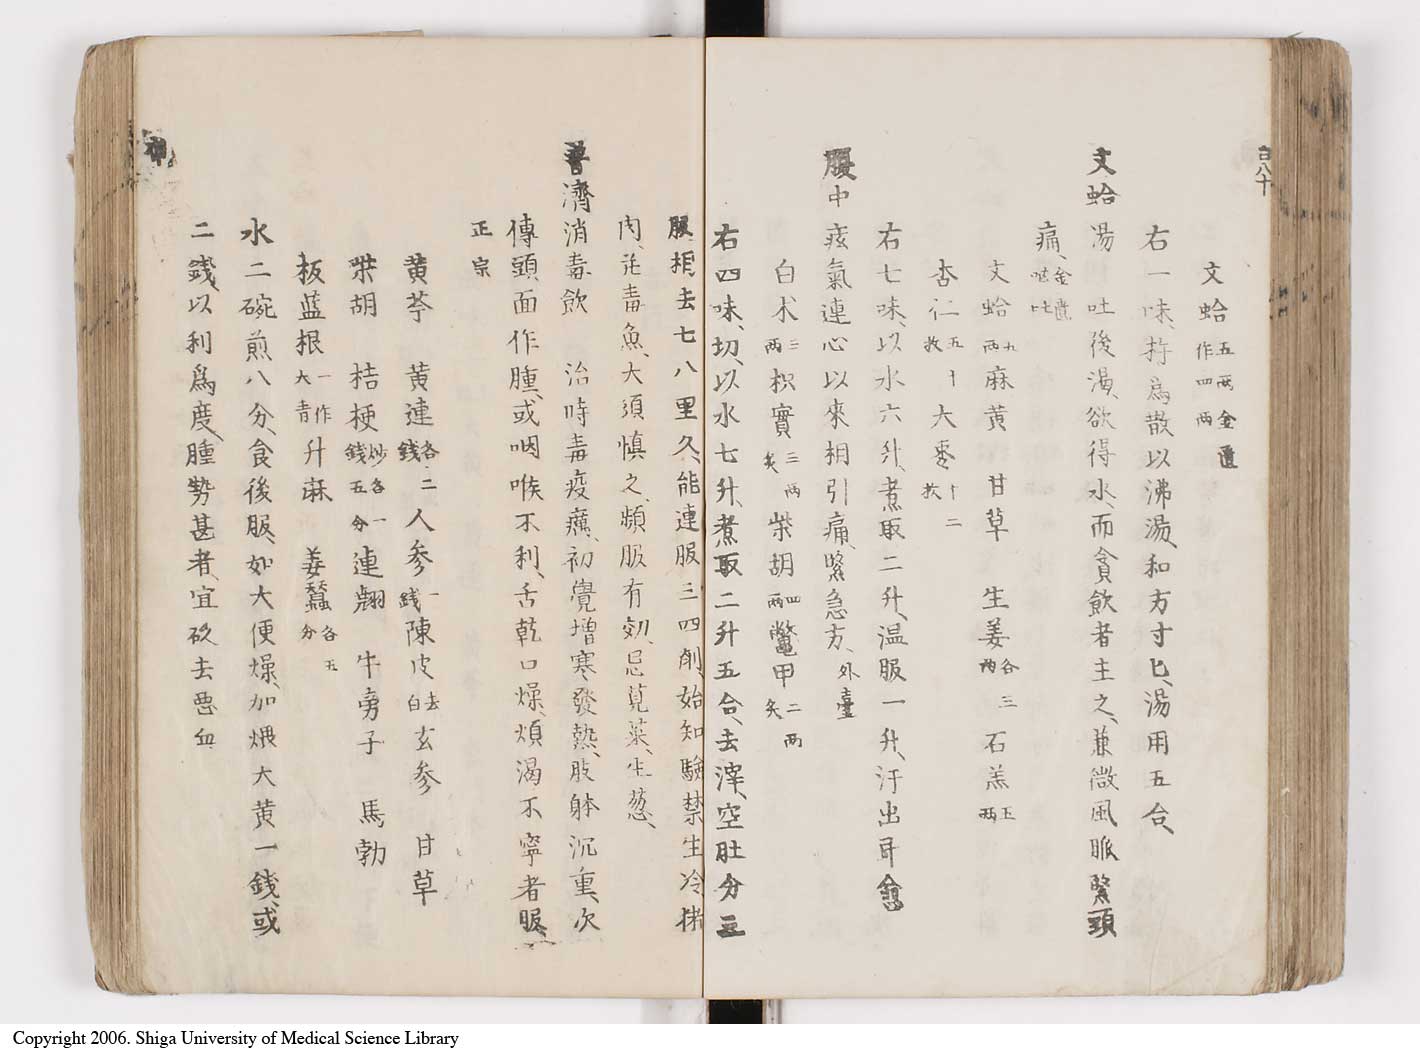 百八十
文蛤五兩金匱作四兩
右一味、杵為散以沸湯、和方寸匕、湯用五合、
文蛤湯 吐後渴、欲得水、而貪飲者主之、兼微風脈緊頭
痛、金匱嘔吐
文蛤九兩麻黃 甘草 生姜各三兩石羔五兩
杏仁五十枚大棗十二枚
右七味、以水六升、煮取二升、温服一升、汗出即愈
腹中痃氣連心以來相引痛、緊急方、外臺
白朮三兩枳實三兩炙柴胡四兩鱉甲二兩炙
右四味、切、以水七升、煮取二升五合、去滓、空肚分三
服、相去七八里久、能連服三四劑、始知驗禁生冷猪
肉、毒魚、大須慎之、頻服有効、忌莧菜、生葱、
普濟消毒飲 治時毒疫癘、初覺增寒發熱、肢躰沉重、次
傳頭、面作腫、或咽喉不利、舌乾口燥、煩渴不寧者服、
正宗
黄芩 黄連各二錢人参一錢陳皮去白玄参 甘草
柴胡 桔梗炒各一錢五分連翹 牛旁子 馬勃
板藍根一作大青升麻 姜蠶各五分
水二碗煎八分、食後服、如大便燥、加煨大黄一錢、或
二錢、以利爲度、腫勢甚者、宜砭去惡血